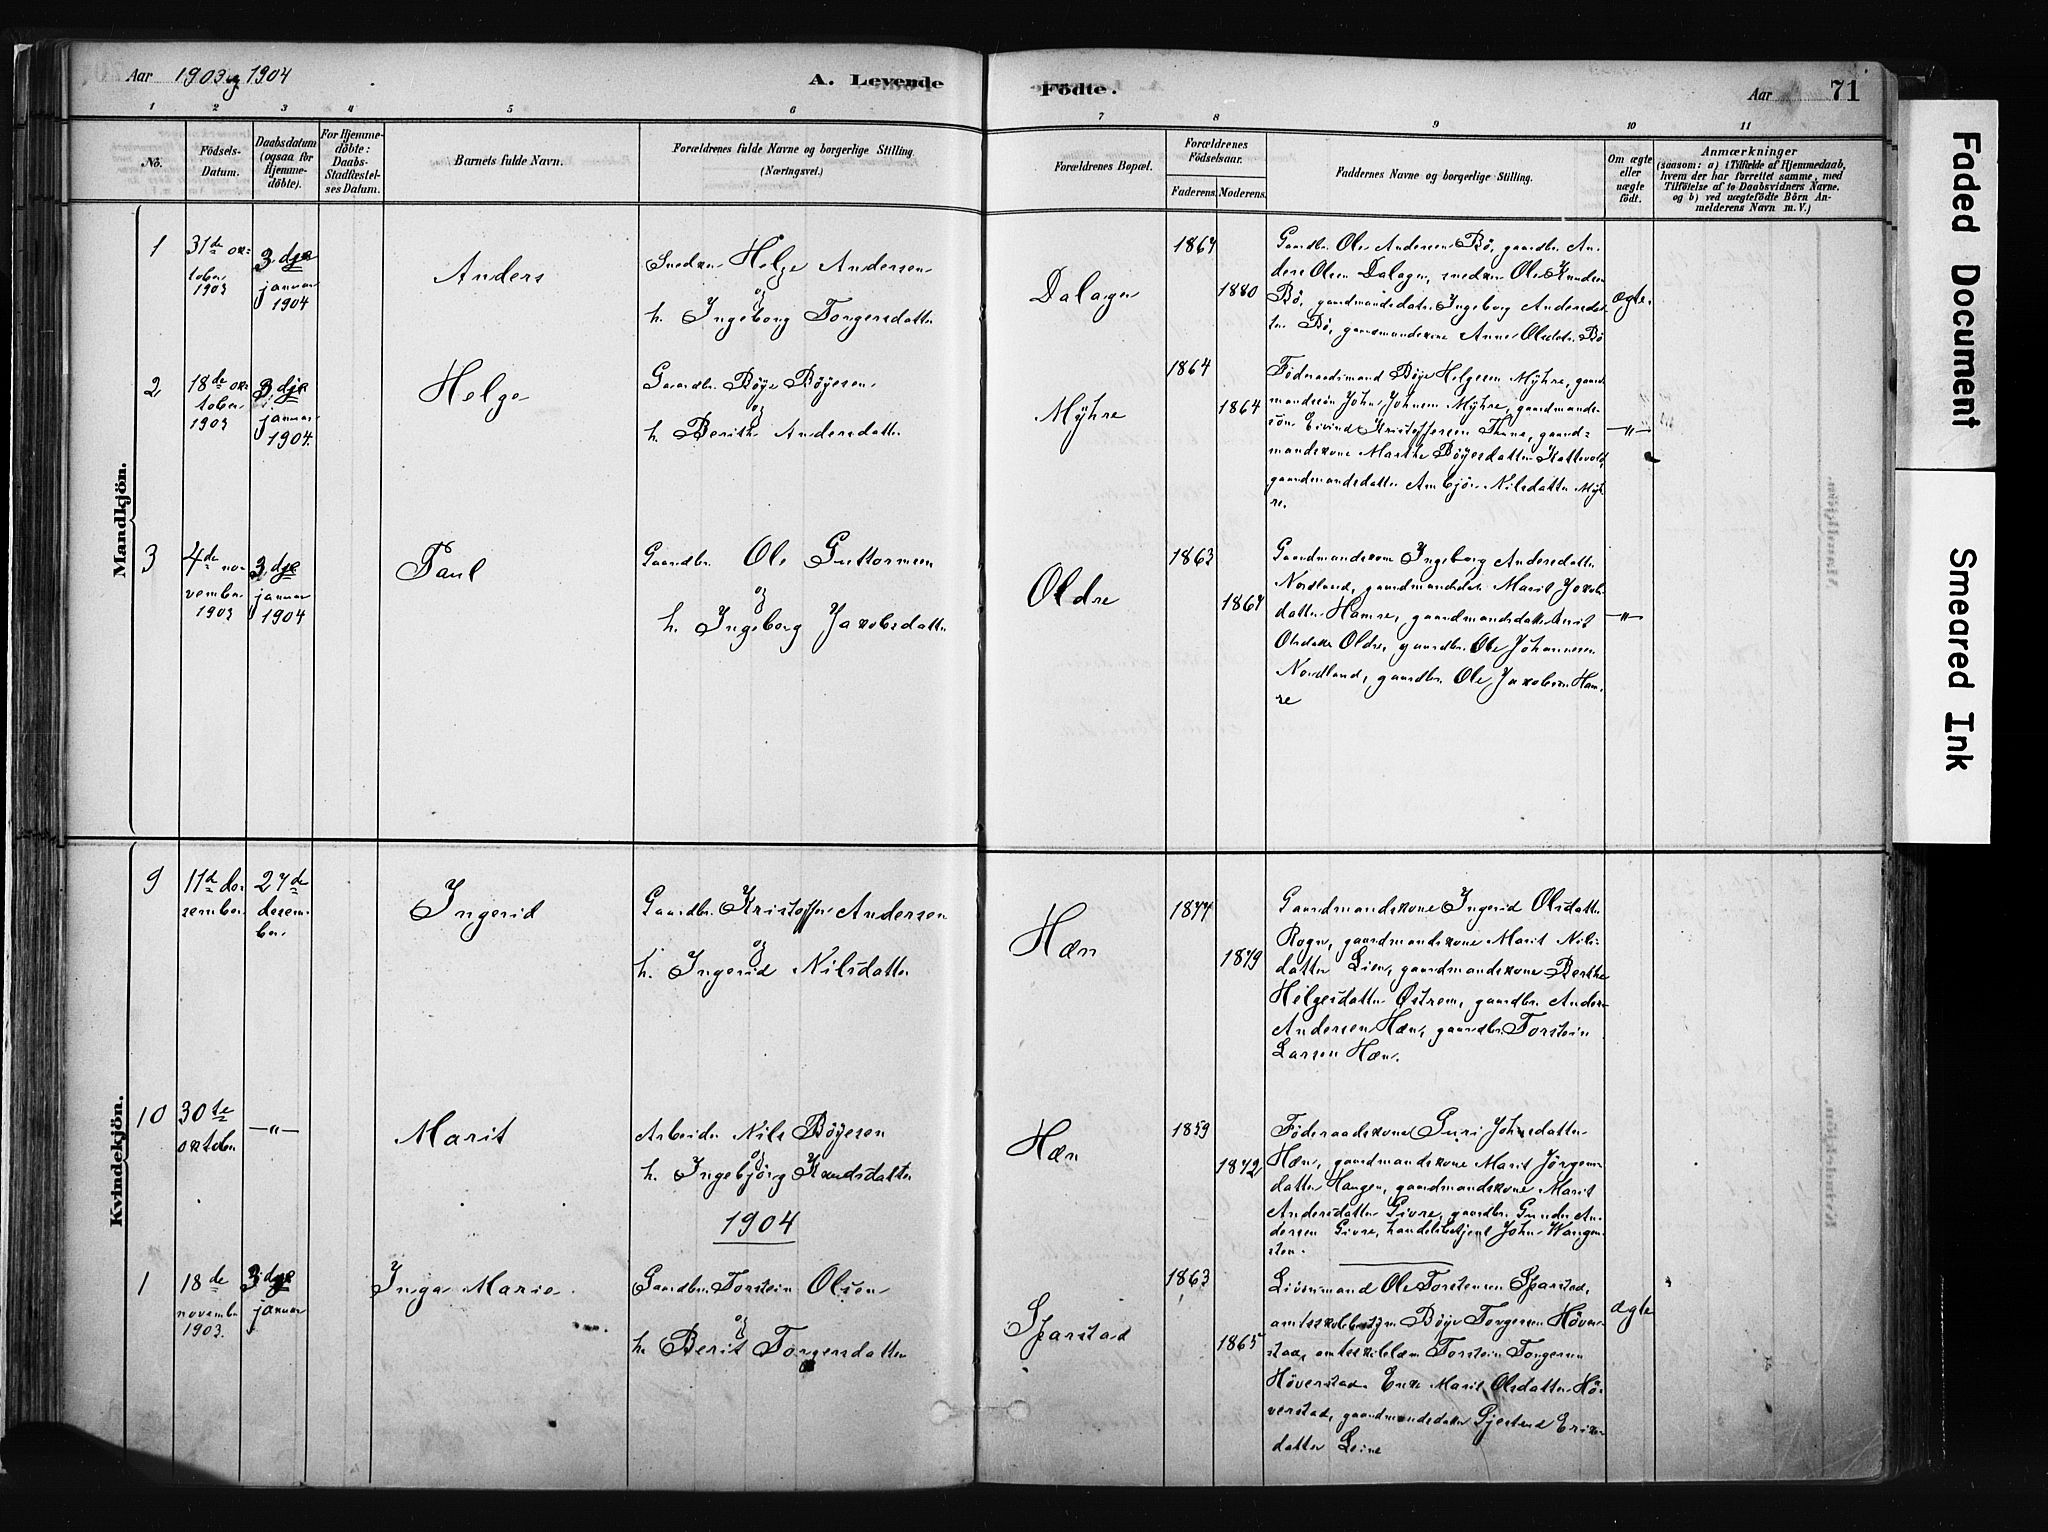 Aar 1903 og 1904
A. Levende
Födte.
Aar
71
1 2 3 4 5 6 7 8 9 10 11
No.
Födsels-
Datum.
Daabsdatum
(ogsaa for
Hjemme-
döbte).
For Hjemme-
döbte:
Daabs-
Stadfæstel-
ses Datum.
Barnets fulde Navn.
Forældrenes fulde Navne og borgerlige Stilling
(Næringsvei.)
Forældrenes Bopæl.
Forældrenes
Födselsaar.
Faderens. Moderens.
Faddernes Navne og borgerlige Stilling.
Om ægte
eller
uægte
födt.
Anmærkninger
(saasom: a) i Tilfælde af Hjemmedaab,
hvem der har forrettet samme, med
Tilföielse af to Daabsvidners Navne.
og b) ved uægtefödte Börn An-
melderens Navn m. V.)
Mandkjön.
1
31te ok-
tober
1903
3dje
januar
1904
Anders
Snedker Helge Andersen
og
h. Ingeborg Torgersdatter
Dalagen
1880
Gaardbr. Ole Andersen Bø, gaardbr. An-
ders Olsen Dalagen, snedker Ole Knudsen
Bø, gaardmandsdatr. Ingeborg Andersdat-
ter Bø, gaardmandskone Anne Olsdatr. Bø
ægte
2
18de ok-
tober
1903
3dje
januar
1904.
Helge
Gaardbr. Bøye Bøyesen
og
h. Berithe Andersdatter
Myhre
1864
1864
Føderaadsmand Bøye Helgesen Myhre, gaard-
mandssøn John Johnsen Myhre, gaardmands-
søn Eivind Kristoffersen Thune, gaard-
mandskone Marthe Bøyesdatter Kattevold,
gaardmandsdatter Ambjør Nilsdatter Myh-
re.
—"—
3
4de no-
vember
1903
3dje
januar
1904
Paul
Gaardbr. Ole Guttormsen
og
h. Ingeborg Jakobsdatter
Oldre
1863
Gaardmandskone Ingeborg Andersdatter
Nordland, gaardmandsdatr. Marit Jakobs-
datter Hamre, gaardmandsdatter Marit
Olsdatter Oldre, gaardbr. Ole Johannesen
Nordland, gaardbr. Ole Jakobsen Ham-
re
—"—
Kvindekjön.
9
11te de-
sember
27de
desem-
ber
Ingerid
Gaardbr. Kristoffer Andersen
og
h. Ingerid Nilsdatter
Hæn
1877
1879
Gaardmandskone Ingerid Olsdatter
Rogn, gaardmandskone Marit Nils-
datter Lien, gaardmandskone Berthe
Helgesdatter Østrem, gaardbr. Anders
Andersen Hæn, gaardbr. Torstein
Larsen Hæn.
10
30te
oktober
—"—
Marit
Arbeider Nils Bøyesen
og
h. Ingebjørg Knudsdatter
Hæn
1859
1872
Føderaadskone Guri Johnsdatter
Hæn, gaardmandskone Marit Jørgens-
datter Haugen, gaardmandskone Marit
Andersdatter Givre, gaardbr. Gunder An-
dersen Givre, handelsbetjent John Wangen-
sten.
1904
1
18de
november
1903.
3dje
januar
Inga Marie
Gaardbr. Torstein Olsen
og
h. Berit Torgersdatter
Sparstad
1863
1865
Livøremand Ole Torstensen Sparstad,
amtsskolebestyrer Bøye Torgersen Høver-
stad, amtsskolelærer Torstein Torgersen
Høverstad. Enke Marit Olsdatter Hø-
verstad, gaardmandsdatter Gjertrud Eriks-
datter Leine
ægte
Faded Document
Smeared Ink